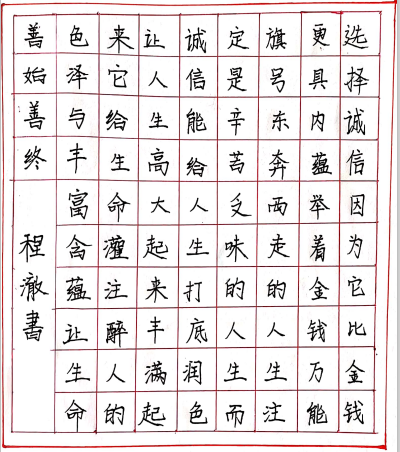 选择诚信因为它比金钱
更具内蕴举着金钱万能
旗号东奔西走的人生注
定是辛苦乏味的人生而
诚信能给人生打底润色
让人生高大起来丰满起
来它给生命灌注醉人的
色泽与丰富含蕴让生命
善始善终
程澈書